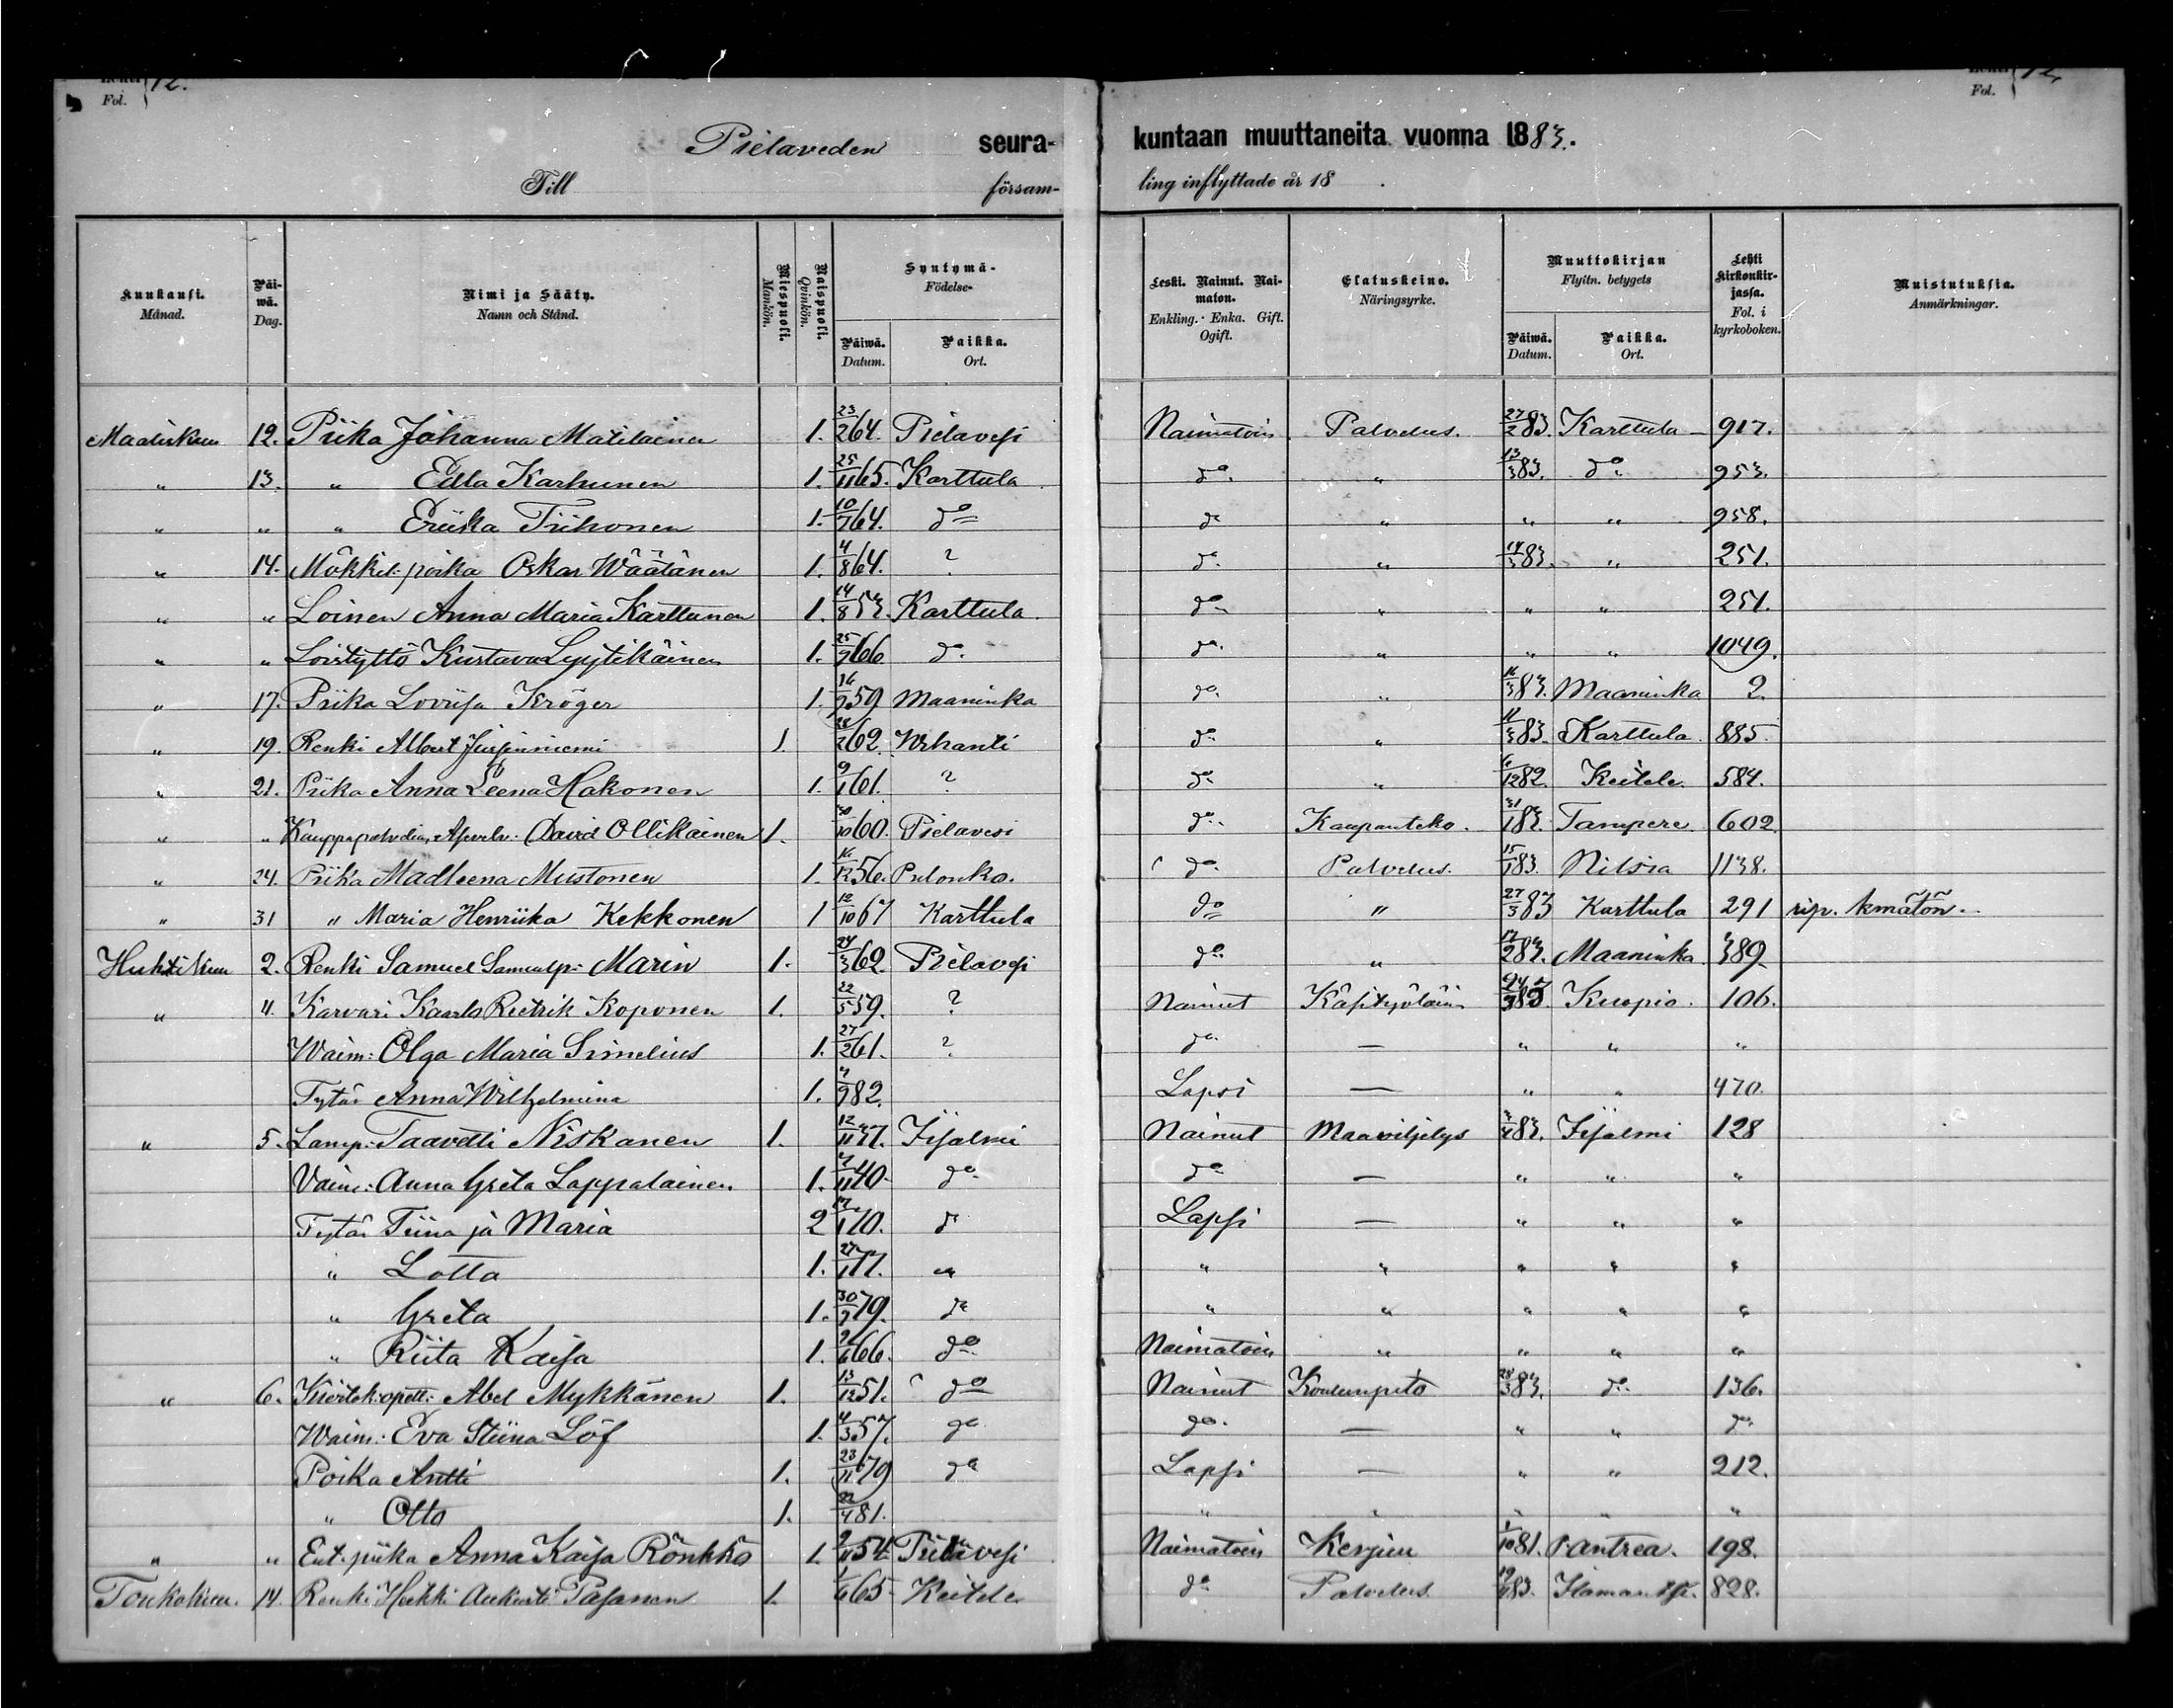 Fol. 12.
Fol. 12.
Pielaveden seurakuntaan muuttaneita vuonna 1883.
Till församling inflyttade år 18 .
Kuukausi. Månad. Päiwä. Dag. Nimi ja Sääty. Namn och Stånd. Miespuoli. Mankön. Naispuoli. Qvinkön. Syntymä- Födelse- Päiwä. Datum. Paikka. Ort. Leski. Nainut. Naimaton. Enkling. Enka. Gift. Ogift. Elatuskeino. Näringsyrke. Muuttokirjan Flyttn. betygets Päiwä. Datum. Paikka. Ort. Lehti kirkonkirjassa. Fol. i kyrkoboken. Muistutuksia. Anmärkningar.
Maaliskuu 12. Piika Johanna Matilainen 1. 23/2 64. Pielavesi Naimatoin Palvelus. 27/2 83. Karttula 917.
" 13. " Edla Karhunen 1. 25/11 65. Karttula do. " 13/3 83. do. 953.
" " " Eriika Tiihonen 1. 10/7 64. do do " " " 958.
" 14. Mökkit. poika Oskar Wäätänen 1. 4/8 64. ? do. " 14/3 83. " 251.
" " Loinen Anna Maria Karttunen 1. 14/8 53. Karttula. do " " " 251.
" " Loistyttö Kustava Lyytikäinen 1. 25/7 66 do. do. " " " 1049.
" 17. Piika Loviisa Kröger 1. 16/9 59 Maaninka do. " 16/3 83. Maaninka 2.
" 19. Renki Albert 1. 62. do. " 83. Karttula. 885.
" 21. Piika Anna Leena Hakonen 1. 9/1 61. ? do. " 6/12 82. Keitele. 584.
" " David Ollikainen 1. 30/10 60. Pielavesi do. Kaupanteko. 31/1 83. Tampere. 602.
" 24. Piika Madleena Mustonen 1. 56. Pulonko. do. Palvelus. 15/1 83. Nilsia 1138.
" 31 " Maria Henriika Kekkonen 1 12/10 67 Karttula do " 27/3 83 Karttula 291 rip. kmätön.
Huhtikuu 2. Renki Samuel Samuelp. Marin 1. 24/3 62. Pielavesi do. " 17/2 83. Maaninka. 389.
" 4. Karvari Kaarlo Reetrik Koponen 1. 22/5 59. ? Nainut Käsityöläin 24/3 83 Kuopio. 106.
Waim: Olga Maria Simelius 1. 27/2 61. ? do. — " " "
Tytär Anna Wilhelmina 1. 4/9 82. Lapsi — " " 470.
" 5. Lamp: Taavetti Niskanen 1. 12/11 37. Iisalmi Nainut Maaviljelys 3/4 83. Iisalmi 128
Vaim: Anna Greta Lappalainen 1. 7/11 40. do. do — " " "
Tytär Tiina ja Maria 2 17/1 70. do Lapsi — " " "
" Lotta 1. 27/1 77. " " " " " "
" Greta 1. 30/7 79. do " " " " "
" Riita Kaisa 1. 9/6 66. do Naimatoin " " " "
" 6. Kiertok: opett: Abel Mykkänen 1. 13/12 51. do Nainut Koulunpito 28/3 83. do. 136.
Waim: Eva Stiina Löf 1. 4/3 57. do do. — " " do.
Poika Antti 1. 23/11 79 do Lapsi — " " 212.
" Otto 1. 22/4 81. " " " " "
" " Ent. piika Anna Kaisa Rönkkö 1. 9/11 54 Pielavesi Naimatoin Kerjuu 1/10 81. Pantrea. 198.
Toukokuu. 14. Renki Heikki Aukusti Pasanen 1. 1/6 65 Keitele do Palvelus. 19/4 83. 828.